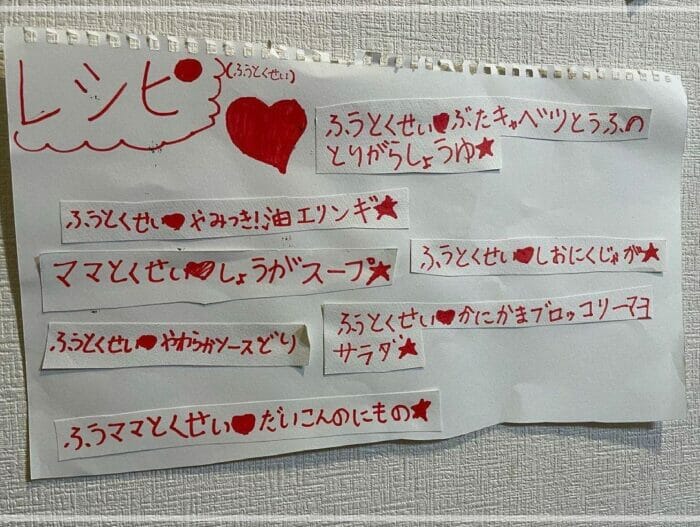 レシピ
(ふうとくせい)
ふうとくせい♥ぶたキャベツとうふの
とりがらしょうゆ★
ふうとくせい♥やみつき!油エリンギ★
ふうとくせい♥しおにくじゃが★
ママとくせい♥しょうがスープ★
ふうとくせい♥かにかまブロッコリーマヨ
サラダ★
ふうとくせい♥やわらかソースどり
ふうママとくせい♥だいこんのにもの★